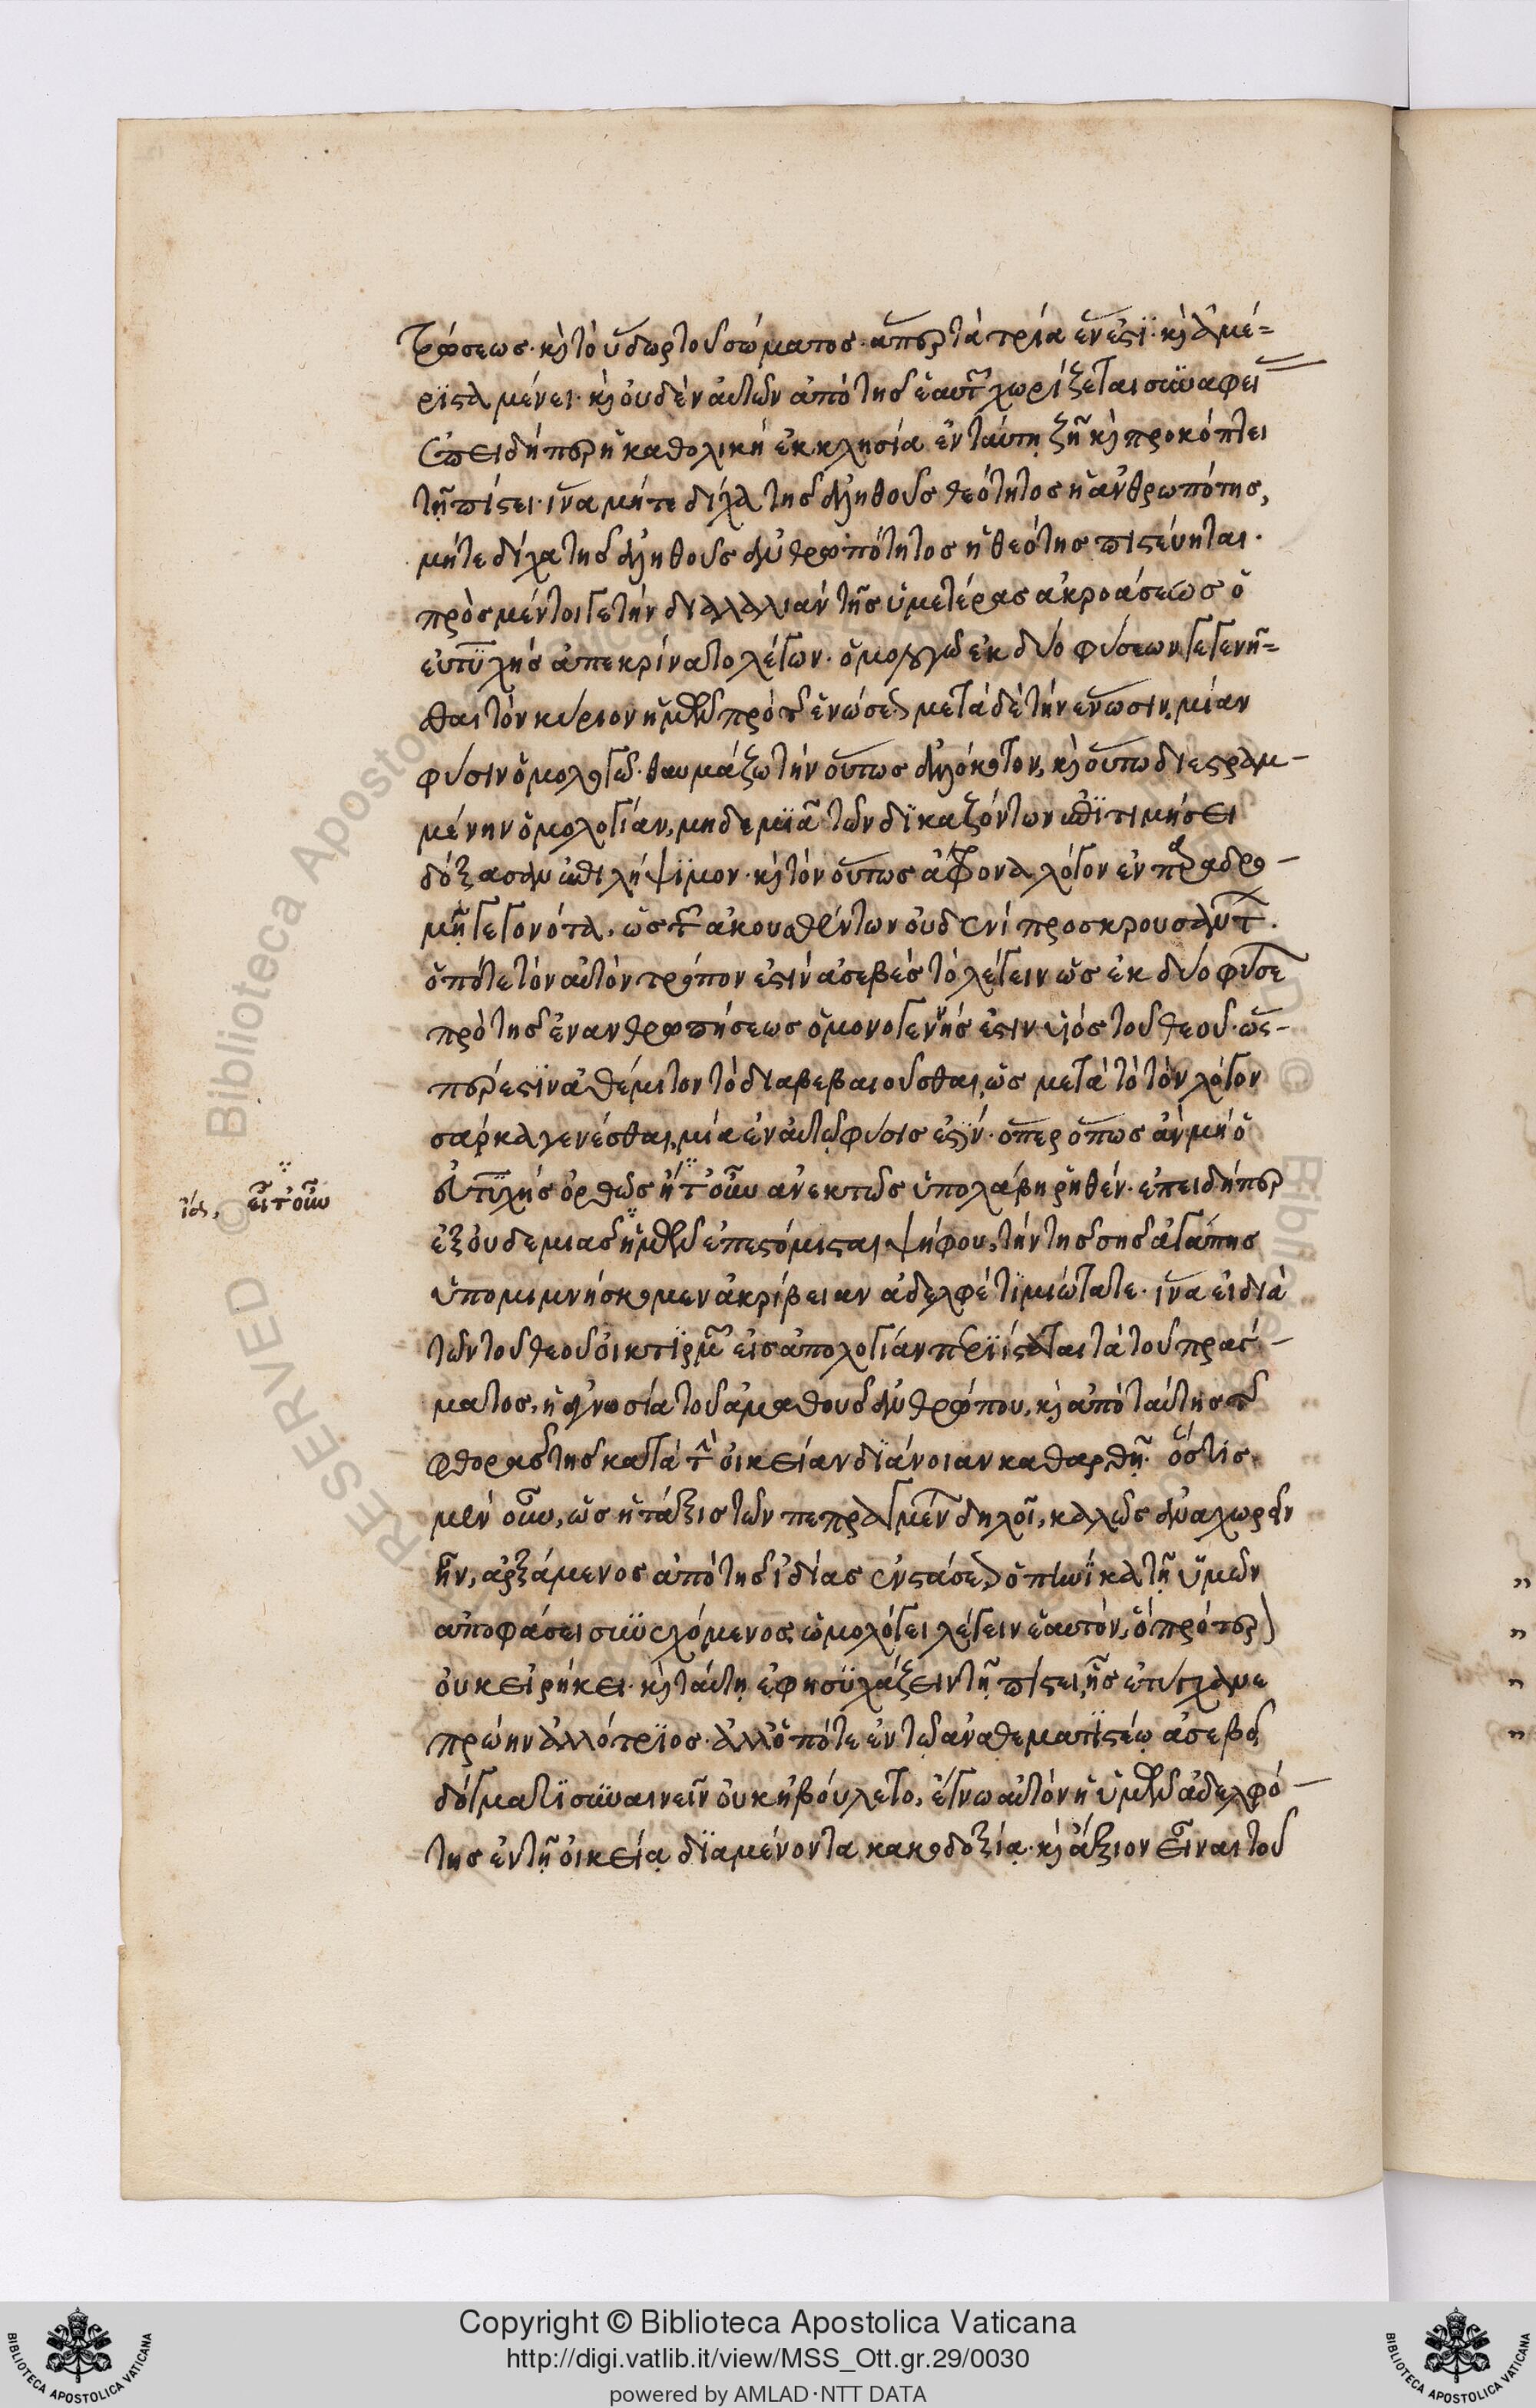 τρώσεως· καὶ τὸ ὕδωρ τοῦ σώματος· ἅπερ τὰ τρία ἕν ἐστι· καὶ ἀμέ-
ριστα μένει· καὶ οὐδὲν αὐτῶν ἀπὸ τῆς ἑαυτῶν χωρίζεται συναφεί
ἐπειδήπερ ἡ καθολικὴ ἐκκλησία ἐν ταύτῃ ζῇ καὶ προκόπτει
τῇ πίστει· ἵνα μήτε δίχα τῆς ἀληθοῦς θεότητος ἡ ἀνθρωπότης,
μήτε δίχα τῆς ἀληθοῦς ἀνθρωπότητος ἡ θεότης πιστεύηται·
πρὸς μέντοιγε τὴν διαλαλιὰν τῆς ὑμετέρας ἀκροάσεως ὁ
εὐτυχὴς ἀπεκρίνατο λέγων· ὁμολογῶ ἐκ δύο φύσεων γεγενῆ-
σθαι τὸν κύριον ἡμῶν πρὸ τῆς ἑνώσεως μετὰ δὲ τὴν ἕνωσιν, μίαν
φύσιν ὁμολογῶ· θαυμάζω τὴν οὕτως ἀλόγιστον, καὶ οὕτω διεστραμ-
μένην ὁμολογίαν, μηδεμιᾶ τῶν δικαζόντων ἐπιτιμήσει
δόξασαν ἐπιλήψιμον· καὶ τὸν οὕτως ἄφρονα λόγον ἐν παραδρο-
μῇ γεγονότα, ὡς τῶν ἀκουσθέντων οὐδενὶ προσκρουσάντων.
ὁπότε τὸν αὐτὸν τρόπον ἐστὶν ἀσεβὲς τὸ λέγειν ὡς ἐκ δύο φύσε
πρὸ τῆς ἐνανθρωπήσεως ὁ μονογενής ἐστιν υἱὸς τοῦ θεοῦ· ὥσ-
περ ἐστὶν ἀθέμιτον τὸ διαβεβαιοῦσθαι, ὡς μετὰ τὸ τὸν λόγον
σάρκα γενέσθαι, μία ἐν αὐτῷ φύσις ἐστίν· ὅπερ ὅπως ἂν μὴ ὁ
εὐτυχὴς ὀρθῶς ἤτ' οὖν ἀνεκτῶς ὑπολάβῃ ῥηθέν· ἐπειδήπερ
ἰσ, εἴτ' οὖν
ἐξ οὐδεμιᾶς ἡμῶν ἐπεστόμισται ψήφου, τὴν τῆς σῆς ἀγάπης
ὑπομιμνήσκομεν ἀκρίβειαν ἀδελφὲ τιμιώτατε· ἵνα εἰ διὰ
τῶν τοῦ θεοῦ οἰκτιρμῶν εἰς ἀπολογίαν περιίσταται τὰ τοῦ πράγ-
ματος, ἡ ἀγνωσία τοῦ ἀμαθοῦς ἀνθρώπου, καὶ ἀπὸ ταύτης τῆς
φθορᾶς τῆς κατὰ τὴν οἰκείαν διάνοιαν καθαρθῇ· ὅστις
μὲν οὖν, ὡς ἡ τάξις τῶν πεπραγμένων δηλοῖ, καλῶς ἀναχωρεῖν
ἦν, ἀρξάμενος ἀπὸ τῆς ἰδίας ἐνστάσεως ὁπηνίκα τῇ ὑμῶν
ἀποφάσει συνεχόμενος, ὡμολόγει λέγειν ἑαυτόν, ὁ πρότερον
οὐκ εἰρήκει· καὶ ταύτῃ ἐφησυχάζειν τῇ πίστει, ἧς ἐτύγχανε
πρώην ἀλλότριος· ἀλλ' ὁπότε ἐν τῷ ἀναθεματιστέῳ ἀσεβεῖ
δόγματι συναινεῖν οὐκ ἠβούλετο, ἔγνω αὐτὸν ἡ ὑμῶν ἀδελφό-
της ἐν τῇ οἰκείᾳ διαμένοντα κακοδοξίᾳ· καὶ ἄξιον εἶναι τοῦ
Copyright © Biblioteca Apostolica Vaticana
http://digi.vatlib.it/view/MSS_Ott.gr.29/0030
powered by AMLAD·NTT DATA